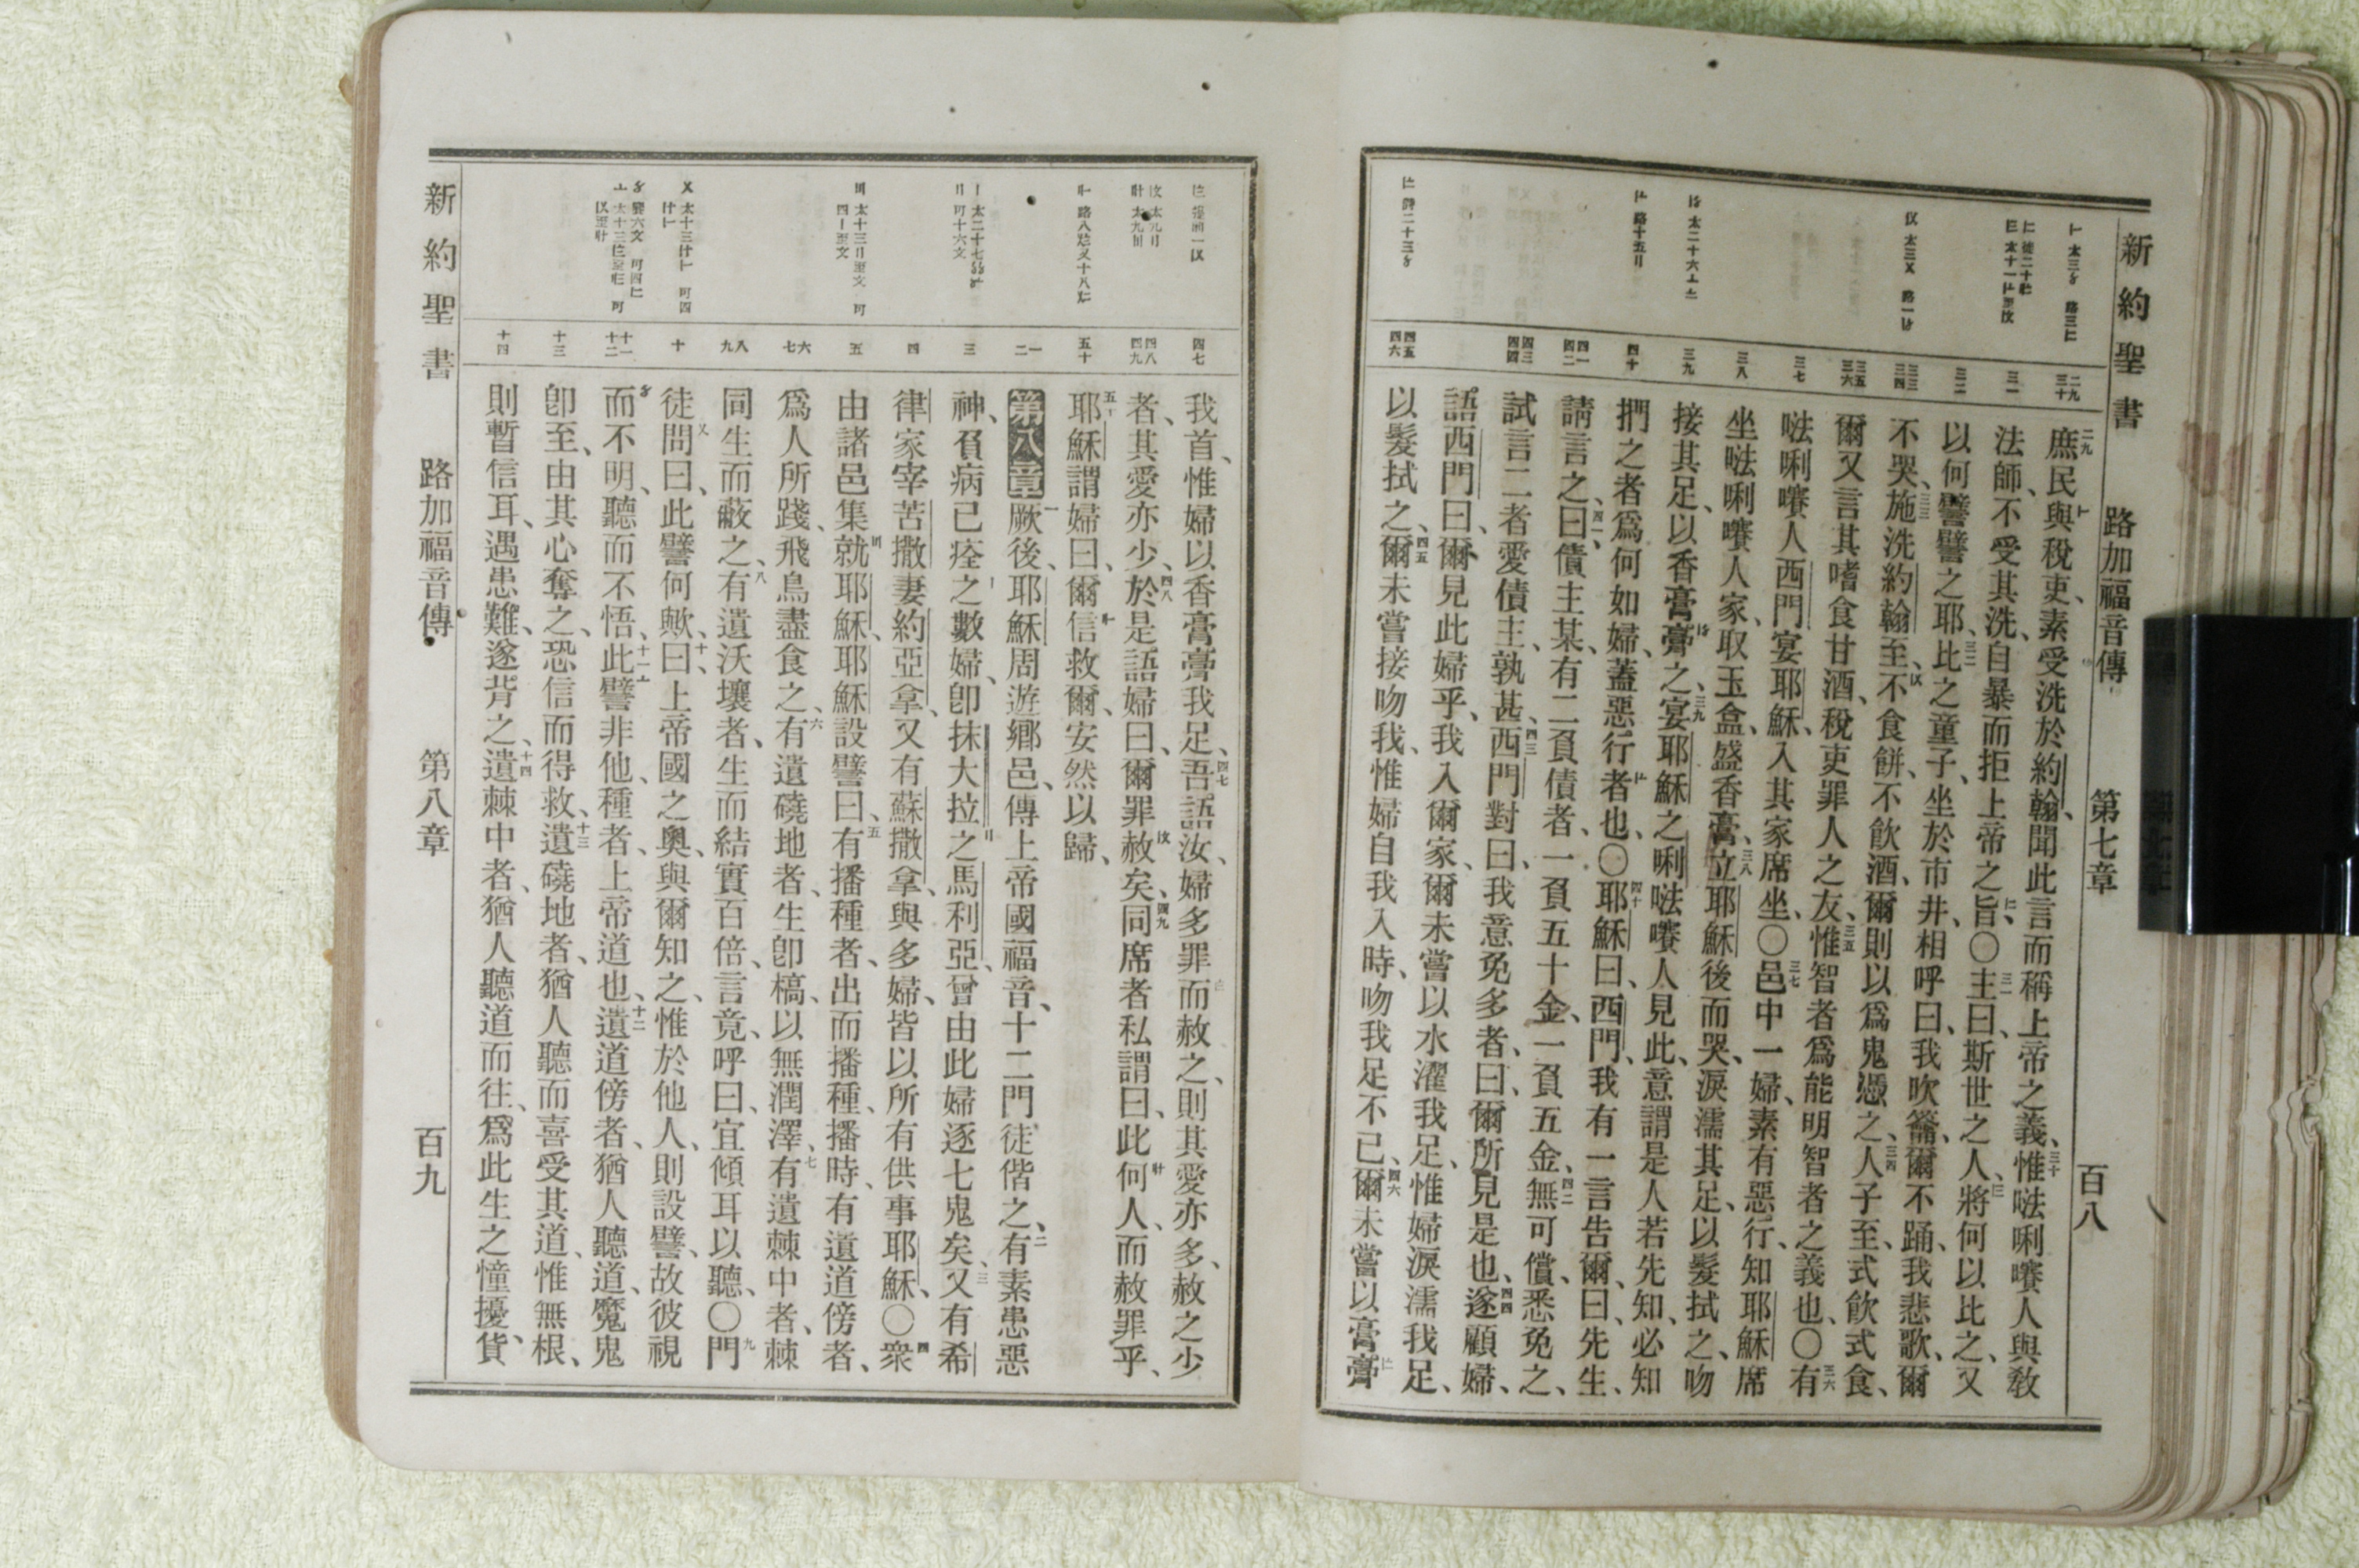 新約聖書 路加福音傳 第七章 百八
二九 庶民與稅吏、素受洗於約翰、聞此言而稱上帝之義、三十 惟𠵽唎㘔人與敎
法師、不受其洗、自暴而拒上帝之旨、〇三一 主曰、斯世之人、將何以比之、又
以何譬譬之耶、三二 比之童子、坐於市井、相呼曰、我吹籥、爾不踊、我悲歌、爾
不哭、三三 施洗約翰至、不食餅、不飲酒、爾則以爲鬼憑之、三四 人子至、式飲式食、
爾又言其嗜食甘酒、稅吏罪人之友、三五 惟智者爲能明智者之義也、〇三六 有
㗁唎㘔人西門宴耶穌、入其家席坐、〇三七 邑中一婦、素有惡行、知耶穌席
坐㗁唎㘔人家、取玉盒、盛香膏、三八 立耶穌後而哭、淚濡其足、以髮拭之、吻
接其足、以香膏膏之、三九 宴耶穌之唎㗁㘔人見此、意謂是人若先知、必知
捫之者爲何如婦、蓋惡行者也、〇四十 耶穌曰、西門、我有一言告爾、曰、先生、
請言之、四一 曰、債主某、有二負債者、一負五十金、一負五金、四二 無可償、悉免之、
試言二者愛債主、孰甚、四三 西門對曰、我意免多者、曰、爾所見是也、四四 遂顧婦、
語西門曰、爾見此婦乎、我入爾家、爾未嘗以水濯我足、惟婦淚濡我足、
以髮拭之、四五 爾未嘗接吻我、惟婦自我入時、吻我足不已、四六 爾未嘗以膏膏
我首、惟婦以香膏膏我足、四七 吾語汝、婦多罪而赦之、則其愛亦多、赦之少
者、其愛亦少、四八 於是語婦曰、爾罪赦矣、四九 同席者私謂曰、此何人、而赦罪乎、
五十 耶穌謂婦曰、爾信救爾、安然以歸、
第八章 一 厥後、耶穌周遊鄉邑、傳上帝國福音、十二門徒偕之、二 有素患惡
神、負病已痊之數婦、卽抹大拉之馬利亞、曾由此婦逐七鬼矣、三 又有希
律家宰苦撒妻約亞拿、又有蘇撒拿、與多婦、皆以所有供事耶穌、〇四 衆
由諸邑集就耶穌、耶穌設譬曰、五 有播種者、出而播種、播時、有遺道傍者、
爲人所踐、飛鳥盡食之、六 有遺磽地者、生卽槁、以無潤澤、七 有遺棘中者、棘
同生而蔽之、八 有遺沃壤者、生而結實百倍、言竟、呼曰、宜傾耳以聽、〇九 門
徒問曰、此譬何歟、十 曰、上帝國之奧、與爾知之、惟於他人、則設譬、故彼視
而不明、聽而不悟、十一 此譬非他、種者、上帝道也、十二 遺道傍者、猶人聽道、魔鬼
卽至、由其心奪之、恐信而得救、十三 遺磽地者、猶人聽而喜受其道、惟無根、
則暫信耳、遇患難、遂背之、十四 遺棘中者、猶人聽道而往、爲此生之憧擾、貨
新約聖書 路加福音傳 第八章 百九